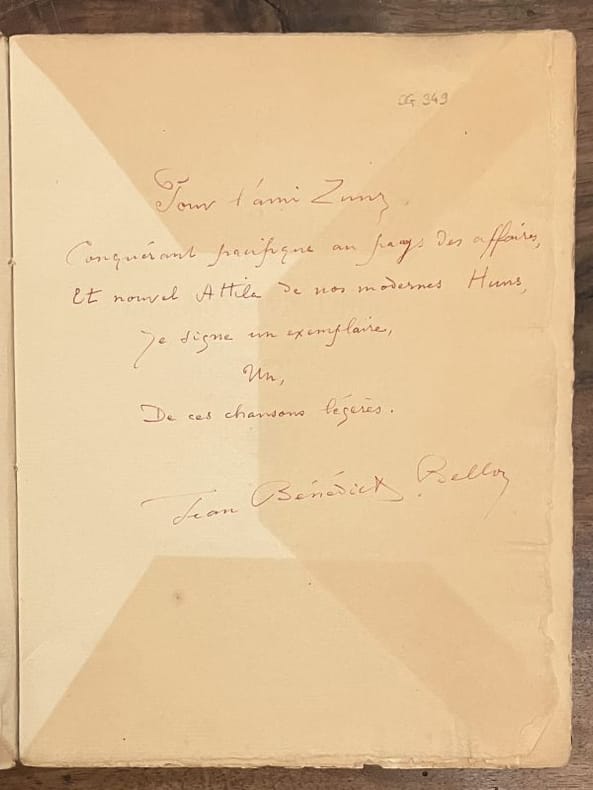 OG 349
Pour l'ami Zunz
Conquérant pacifique au pays des affaires,
Et nouvel Attila de nos modernes Huns,
Je signe un exemplaire,
Un,
De ces chansons légères.
Jean Bénédict